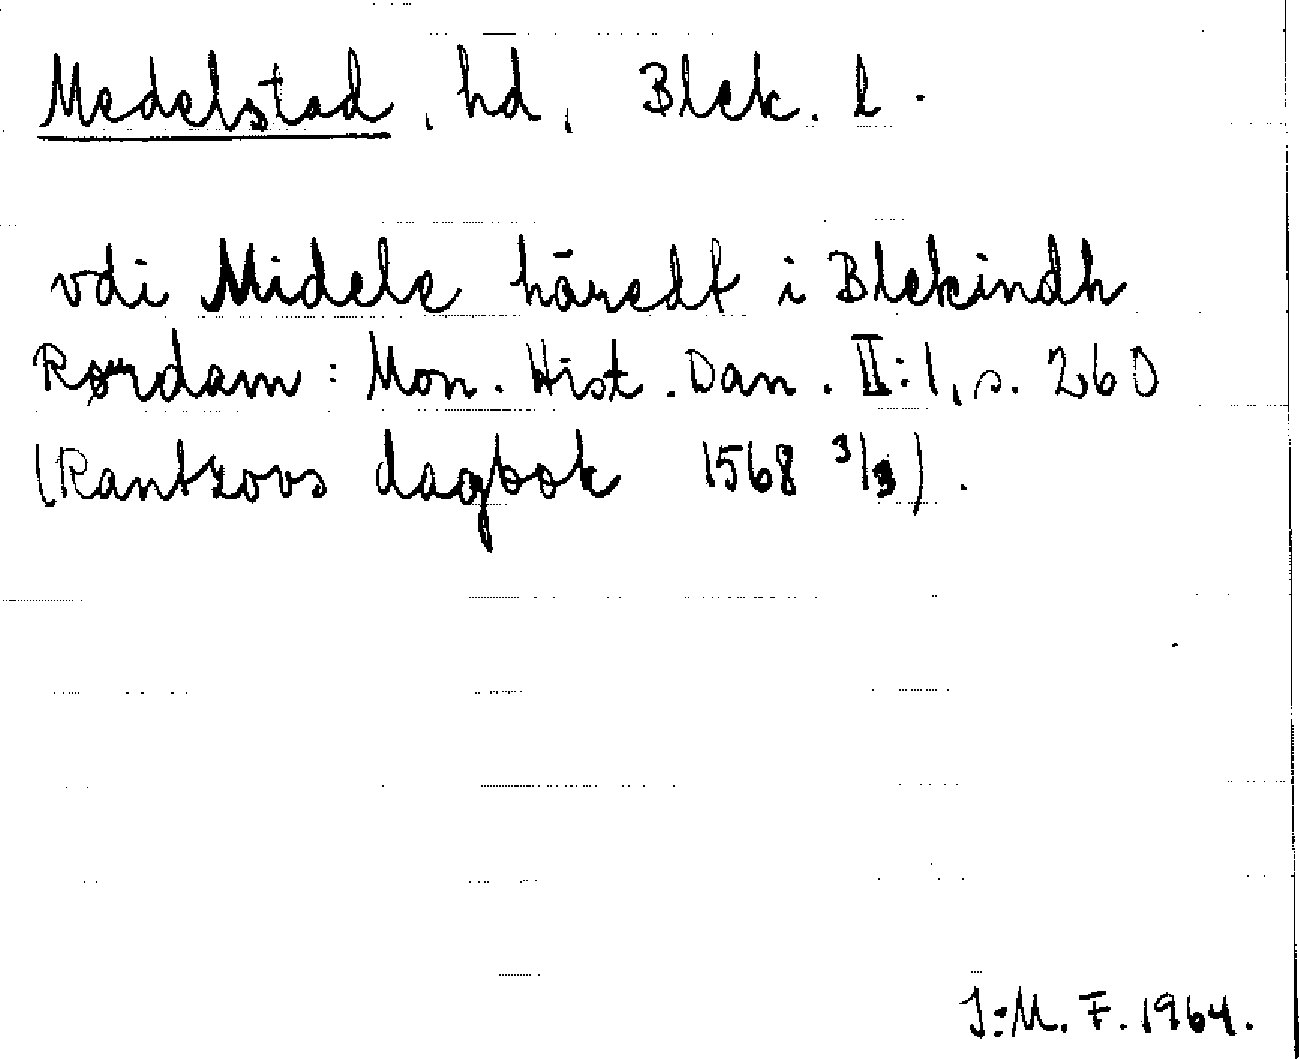 Medelstad, hd, Blek. l.
vdi Midele häredt i Blekindh
Rørdam: Mon. Hist. Dan. II:1, s. 260
(Rantzovs dagbok 1568 3/3).
J:M. F. 1964.